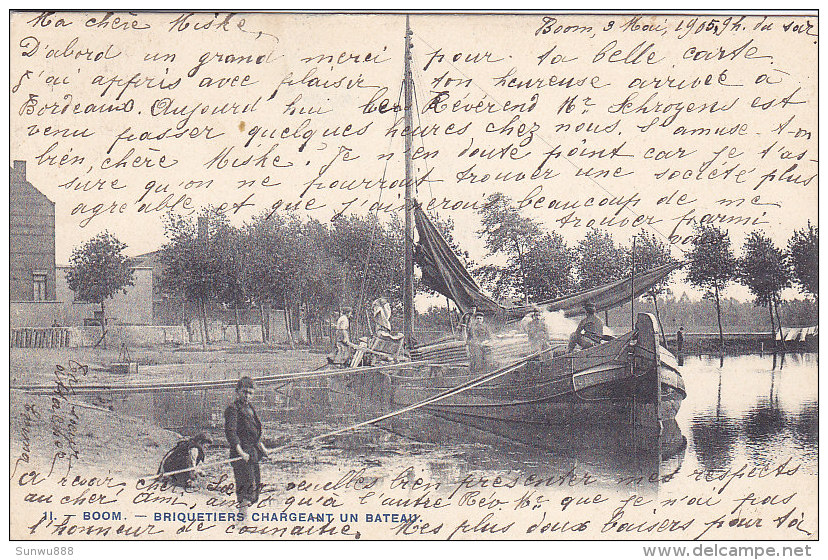 Ma chère Miske,
Boom, 3 Mai, 1905, 9h. du soir.
D'abord un grand merci pour ta belle carte.
J'ai appris avec plaisir ton heureuse arrivée à
Bordeaux. Aujourd'hui le Révérend Mr. Schroyens est
venu passer quelques heures chez nous. S'amuse-t-on
bien, chère Miske? Je n'en doute point car je t'as-
sure qu'on ne pourrait trouver une société plus
agréable et que j'aimerais beaucoup de me
trouver parmi
vous.
A revoir, chère Amie, veuilles bien présenter mes respects
au cher ainsi qu'à l'autre Rév. Mr. que je n'ai pas
11. - BOOM. - BRIQUETIERS CHARGEANT UN BATEAU.
l'honneur de connaître. Mes plus doux baisers pour toi
Sunwu888
www.delcampe.net